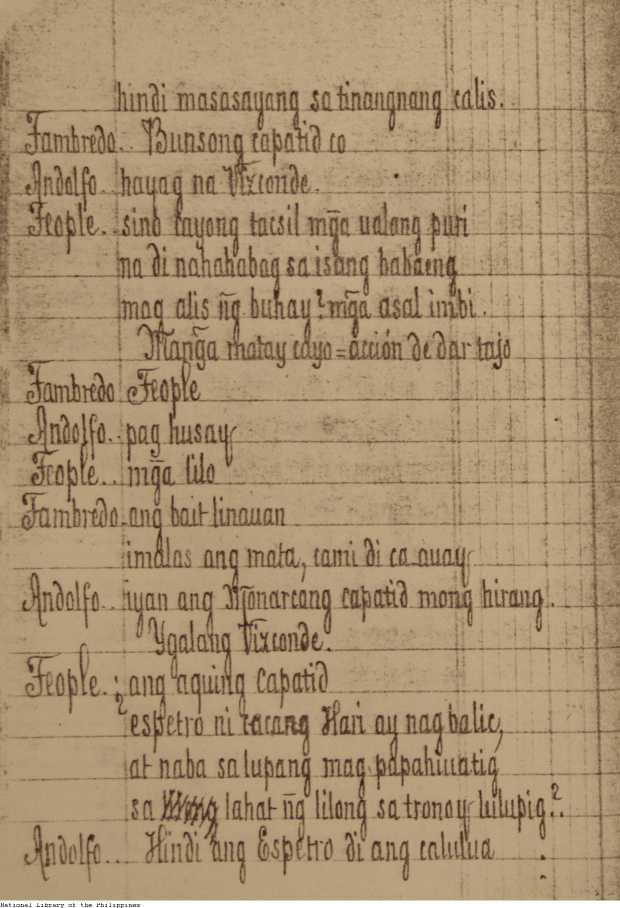 hindi masasayang sa tinangnang calis.
Fambredo.. Bunsong capatid co
Andolfo.. hayag na Vizconde.
Feople.. sino cayong tacsil mg̃a ualang puri
na di nahahabag sa isang babaeng
mag alis ng̃ buhay? mg̃a asal imbi.
Mang̃a matay cayo = acción de dar tajo
Fambredo Feople
Andolfo.. pag husay
Feople.. mg̃a lilo
Fambredo. ang bait linauan
imalas ang mata, cami di ca auay
Andolfo.. iyan ang Monarcang capatid mong hirang.
Ygalang Vizconde.
Feople.. ¿ang aquing Capatid
espetro ni cacang Hari ay nagbalic,
at naba sa lupang mag papahiuatig
sa lahat ng̃ lilong sa tronoy lulupig?.
Andolfo... Hindi ang Espetro di ang calulua
National Library of the Philippines